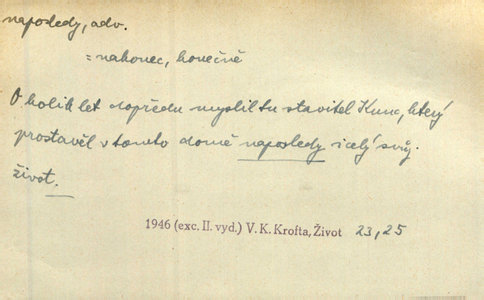 naposledy, adv.
= nakonec, konečně
O kolik let dopředu myslil tu stavitel Kunc, který
prostavěl v tomto domě naposledy i celý svůj
život.
1946 (exc. II. vyd.) V. K. Krofta, Život 23, 25